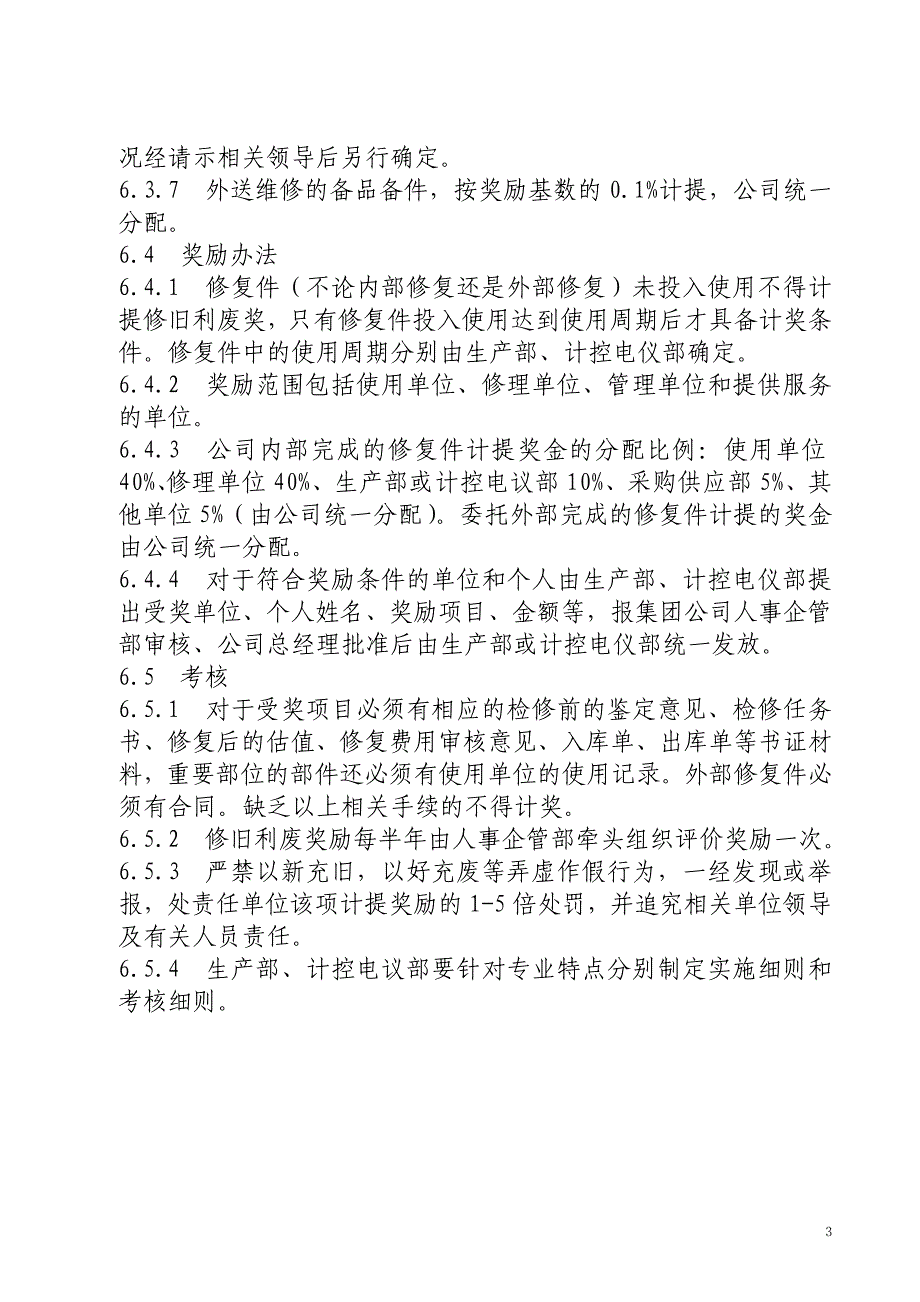 况经请示相关领导后另行确定。
6.3.7  外送维修的备品备件，按奖励基数的 0.1%计提，公司统一
分配。
6.4  奖励办法
6.4.1  修复件（不论内部修复还是外部修复）未投入使用不得计
提修旧利废奖，只有修复件投入使用达到使用周期后才具备计奖条
件。修复件中的使用周期分别由生产部、计控电仪部确定。
6.4.2  奖励范围包括使用单位、修理单位、管理单位和提供服务
的单位。
6.4.3  公司内部完成的修复件计提奖金的分配比例：使用单位
40%、修理单位 40%、生产部或计控电议部 10%、采购供应部 5%、其
他单位 5%（由公司统一分配）。委托外部完成的修复件计提的奖金
由公司统一分配。
6.4.4  对于符合奖励条件的单位和个人由生产部、计控电仪部提
出受奖单位、个人姓名、奖励项目、金额等，报集团公司人事企管
部审核、公司总经理批准后由生产部或计控电仪部统一发放。
6.5  考核
6.5.1  对于受奖项目必须有相应的检修前的鉴定意见、检修任务
书、修复后的估值、修复费用审核意见、入库单、出库单等书证材
料，重要部位的部件还必须有使用单位的使用记录。外部修复件必
须有合同。缺乏以上相关手续的不得计奖。
6.5.2  修旧利废奖励每半年由人事企管部牵头组织评价奖励一次。
6.5.3  严禁以新充旧，以好充废等弄虚作假行为，一经发现或举
报，处责任单位该项计提奖励的 1-5 倍处罚，并追究相关单位领导
及有关人员责任。
6.5.4  生产部、计控电议部要针对专业特点分别制定实施细则和
考核细则。
3